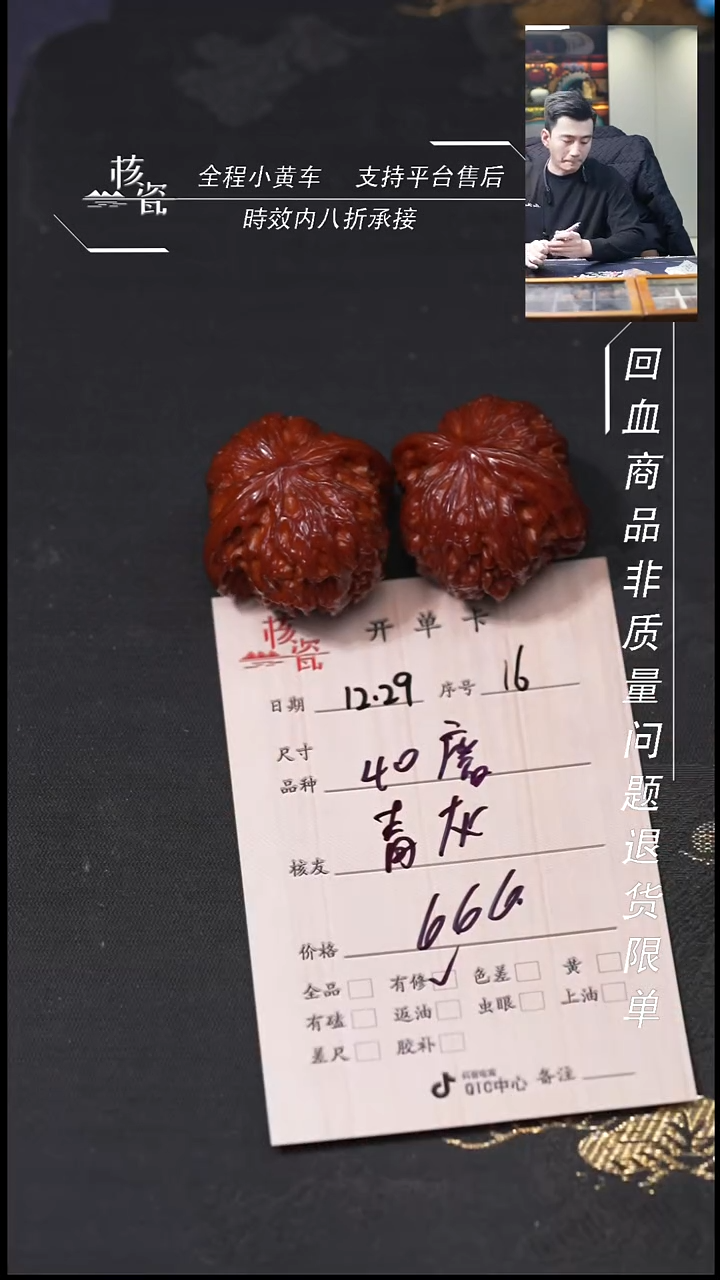 核瓷
全程小黄车 支持平台售后
時效内八折承接
回血商品非质量问题退货限单
核瓷 开单卡
日期 12.29 序号 16
尺寸
品种 40磨
核友 青灰
价格 666.
全品 有修 ✓ 色差 黄
有磕 返油 虫眼 上油
差尺 胶补
QIC中心 备注